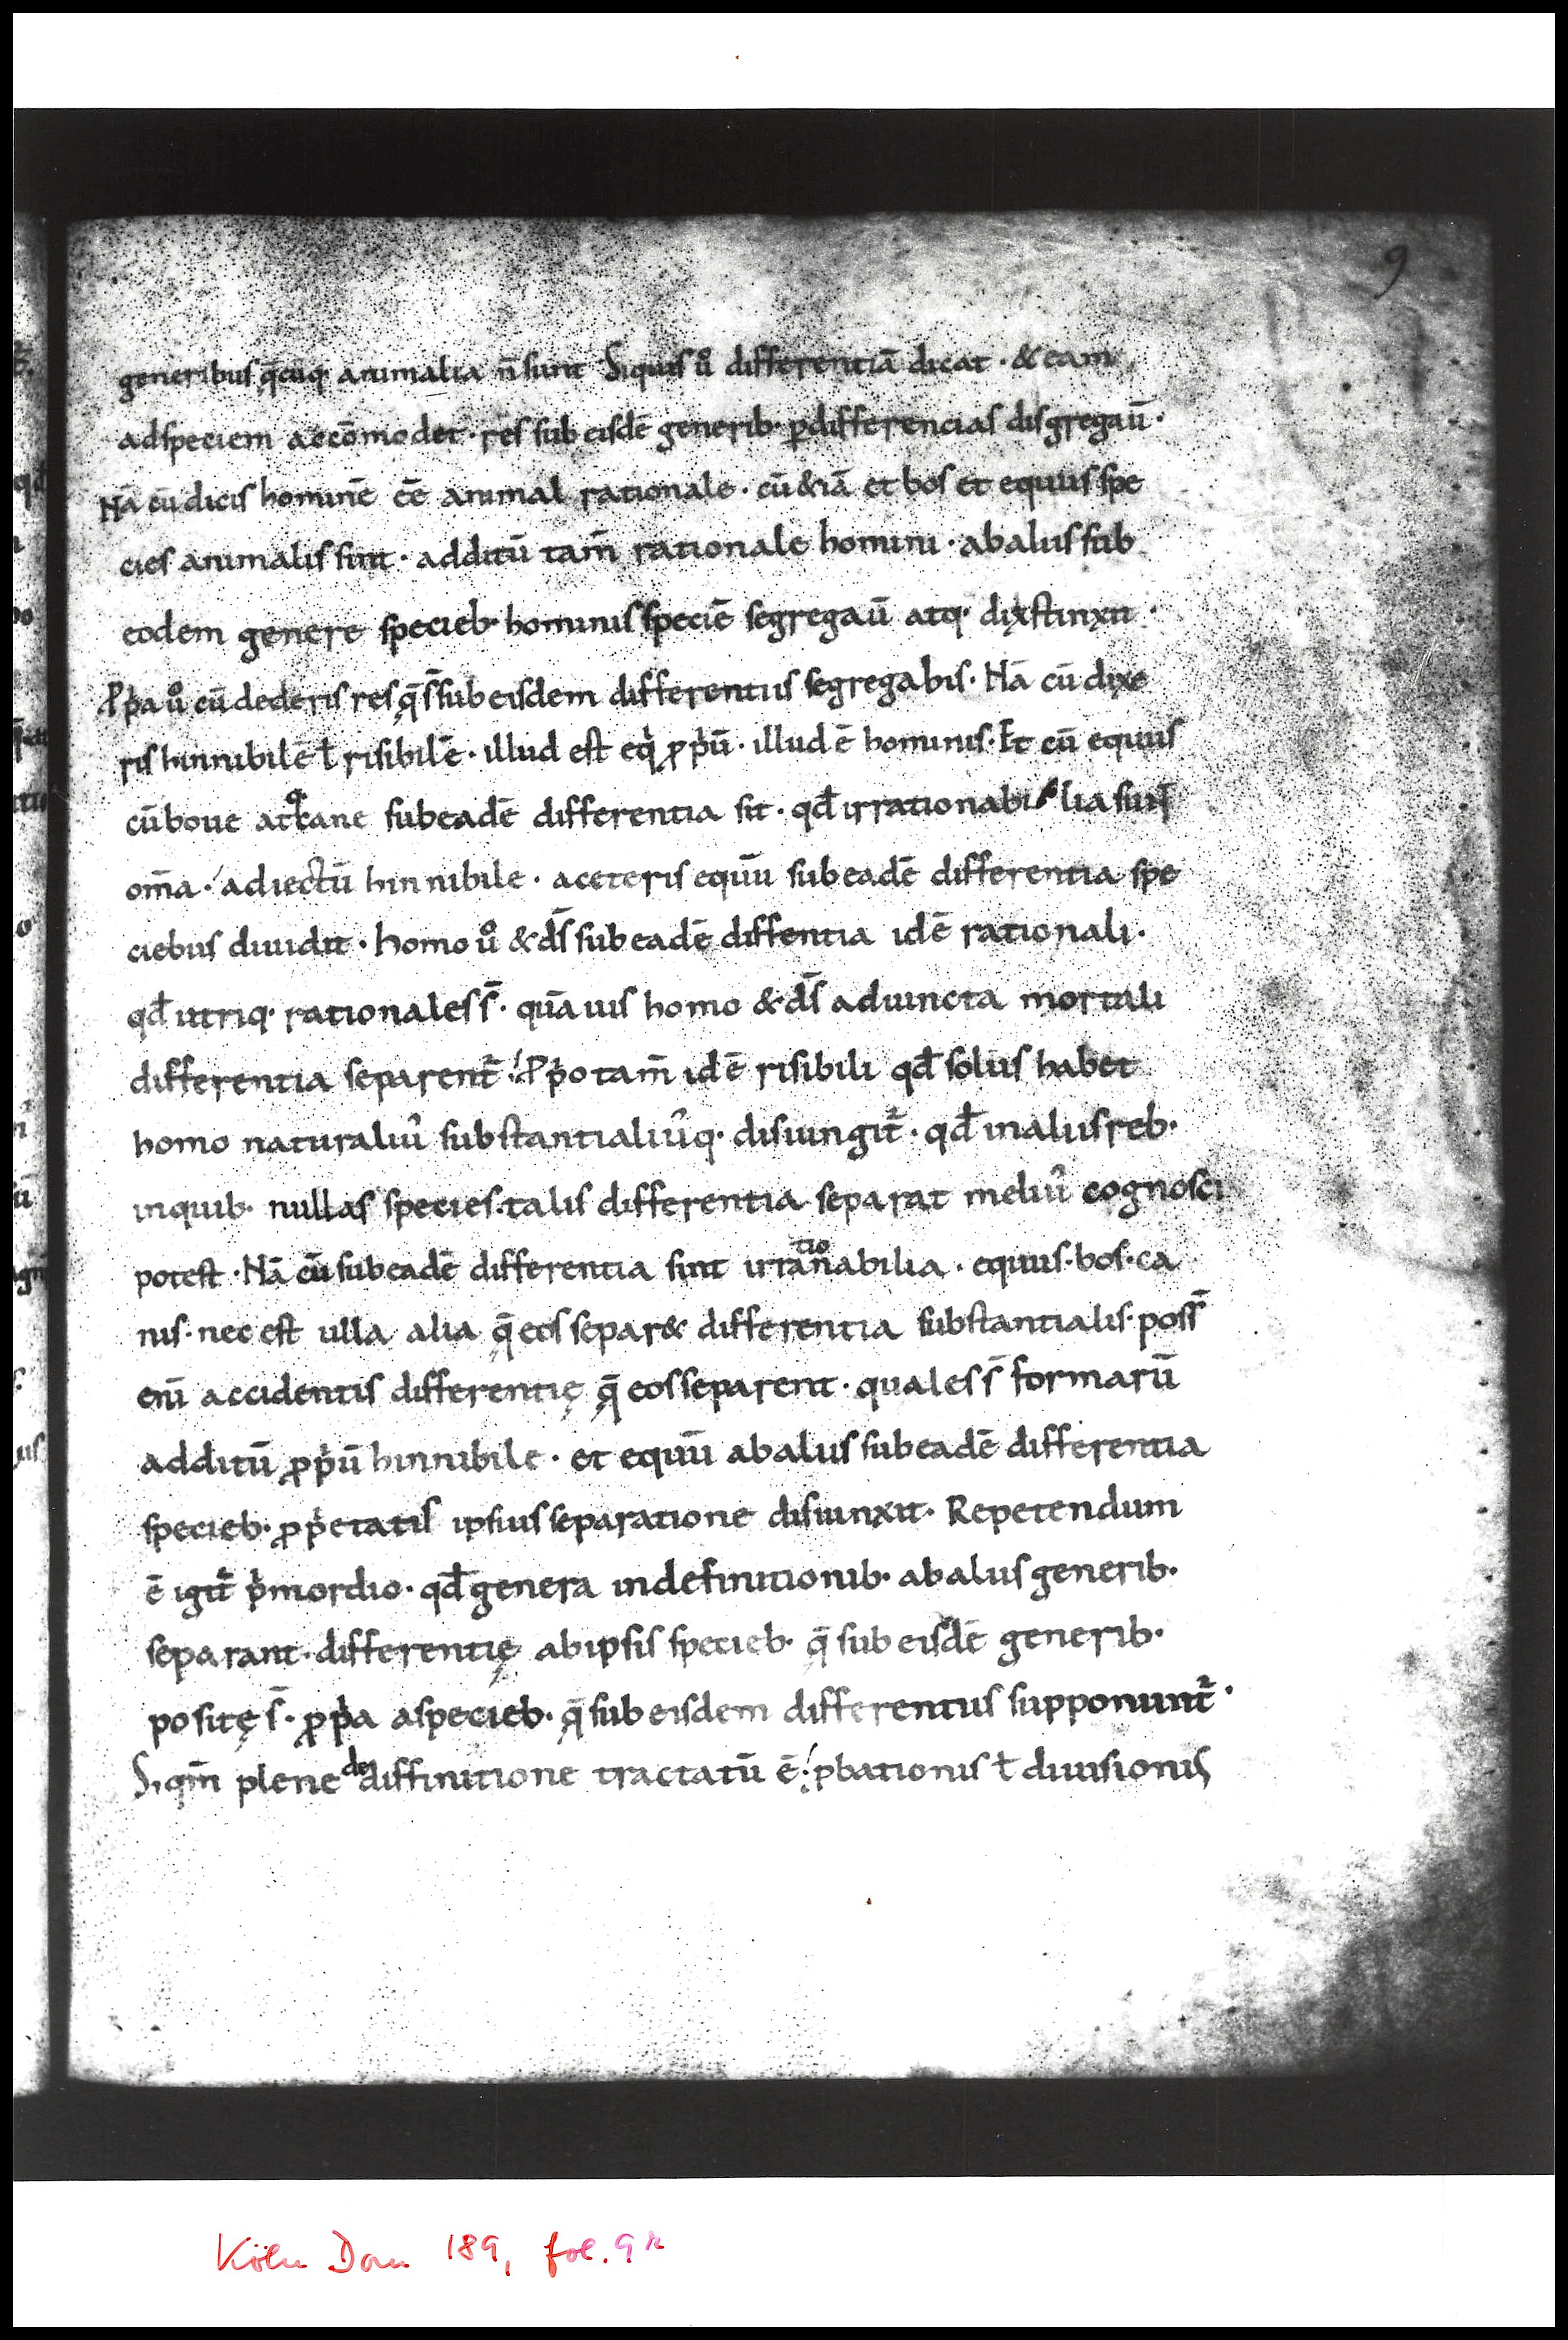 9
generibus q̄cūq· animalia n̄ sunt Siquis ů differentiā dicat · & eam
adspeciem accōmodet · res sub eisdē generib· ꝑdifferencias disgregau̅ ·
Nā cū dicis hominē eē animal rationale · cū &iā et bos et equus spe
cies animalis sint · additū tam̄ rationale homini · abaliis sub
eodem genere specieb· hominis speciē segregau̅ atq· dixstinxit ·
Ꝓp̍a ů cū dederis res q̄ s̄ sub eisdem differentiis segregabis · Nā cū dixe
ris hinnibilē ł risibilē · illud est eq̍ ꝓp̍ū · illud ē hominis · Et cū equus
cū boue atq· cane sub eadē differentia sit · qđ irrationabilia sunt
om̄a · adiectū hinnibile · aceteris equū sub eadē differentia spe
ciebus diuidit · homo ů & ds̄ sub eadē diffentia idē rationali ·
qđ utriq· rationales s̄ · quāuis homo & ds̄ adiuncta mortali
differentia separent᷑ · Ꝓp̍o tam̄ idē risibili qđ solus habet
homo naturaliu᷑ substantialiu᷑q· disiungit᷑ · qđ inaliis reb·
inquib· nullas species talis differentia separat meliu᷑ cognosci
potest · Nā cū sub eadē differentia sint irrationabilia · equus · bos · ca
nis · nec est ulla alia q̄ eos separ& differentia substantialis · poss̄
eni̅ accidentis differentię q̄ eos separent · quales s̄ formarū
additū ꝓp̍ū hinnibile · et equū abaliis sub eadē differentia
specieb· ꝓp̍etatis ipsius separatione disiunxit · Repetendum
ē igit᷑ p̍mordio · qđ genera indefinitionib· abaliis generib·
separant · differentię abipsis specieb· q̄ sub eisdē generib·
positę s̄ · ꝓp̍a aspecieb· q̄ sub eisdem differentiis supponunt᷑ ·
S, qm̄ plene de diffinitione tractatū ē · ꝓbationis ł diuisionis
Köln Dom 189, fol. 9r